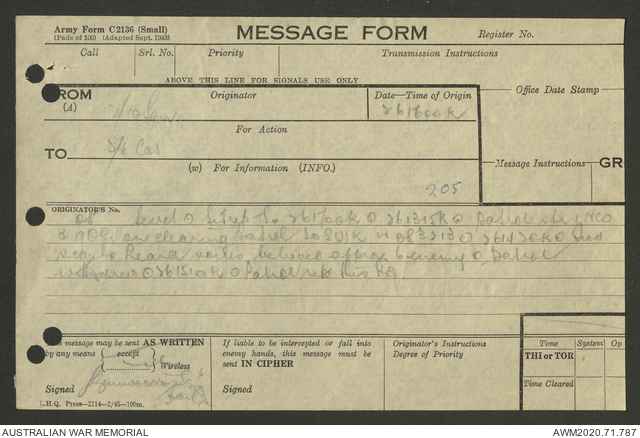 Army Form C2136 (Small)
(Pads of 100) (Adapted Sept. 1943)
MESSAGE FORM
Register No.
Call
Srl. No.
Priority
Transmission Instructions
ABOVE THIS LINE FOR SIGNALS USE ONLY
FROM
(A)
Originator
Date—Time of Origin
261600K
Office Date Stamp
For Action
TO
(w) For Information (INFO.)
Message Instructions
GR
205
ORIGINATOR'S No.
Sitrep to 261700K O 261315K O patrol 1 NCO
clearing patrol to 261430K O
heard voices believed approx 6 enemy O patrol
withdrew O 261510K O Patrol this HQ.
This message may be sent AS WRITTEN
by any means
except
Wireless
Signed
If liable to be intercepted or fall into
enemy hands, this message must be
sent IN CIPHER
Signed
Originator's Instructions
Degree of Priority
Time
System
Op
THI or TOR
Time Cleared
L.H.Q. Press—2114—2/45—100m.
AUSTRALIAN WAR MEMORIAL
AWM2020.71.787